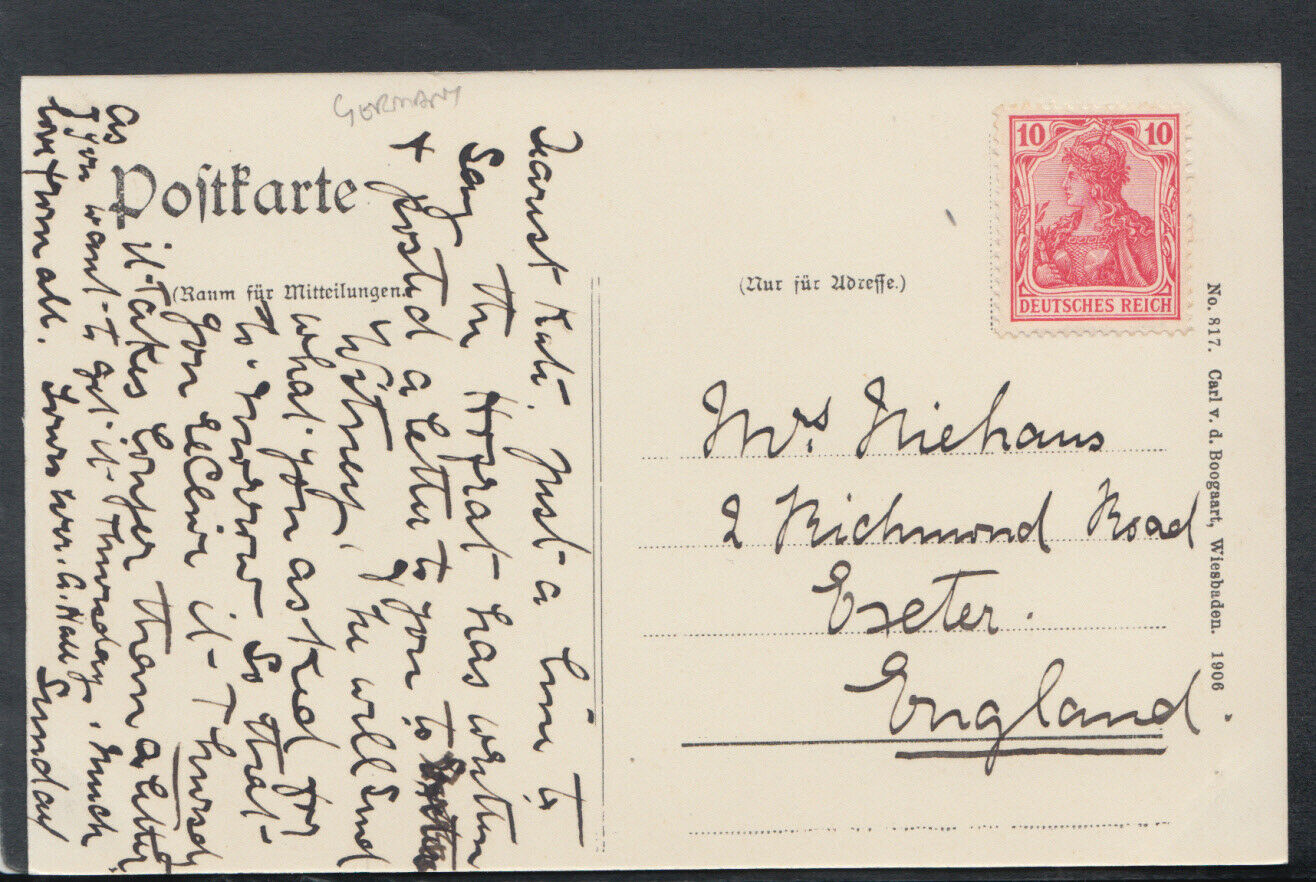 GERMANY
Postkarte
(Raum für Mitteilungen.)
Dearest Kate, Just a line to
say the Hofrat has written
+ posted a letter to you to
Witney, he will send
what you asked for
to-morrow so that
you receive it Thursd
as it takes longer than a letter
if you want to get it Thursday. Much
love from all. Yours ever. A. Haug
Sunday
(Nur für Adresse.)
10 10
DEUTSCHES REICH
Mrs Niehaus
2 Richmond Road
Exeter.
England.
No. 817. Carl v. d. Boogaart, Wiesbaden. 1906